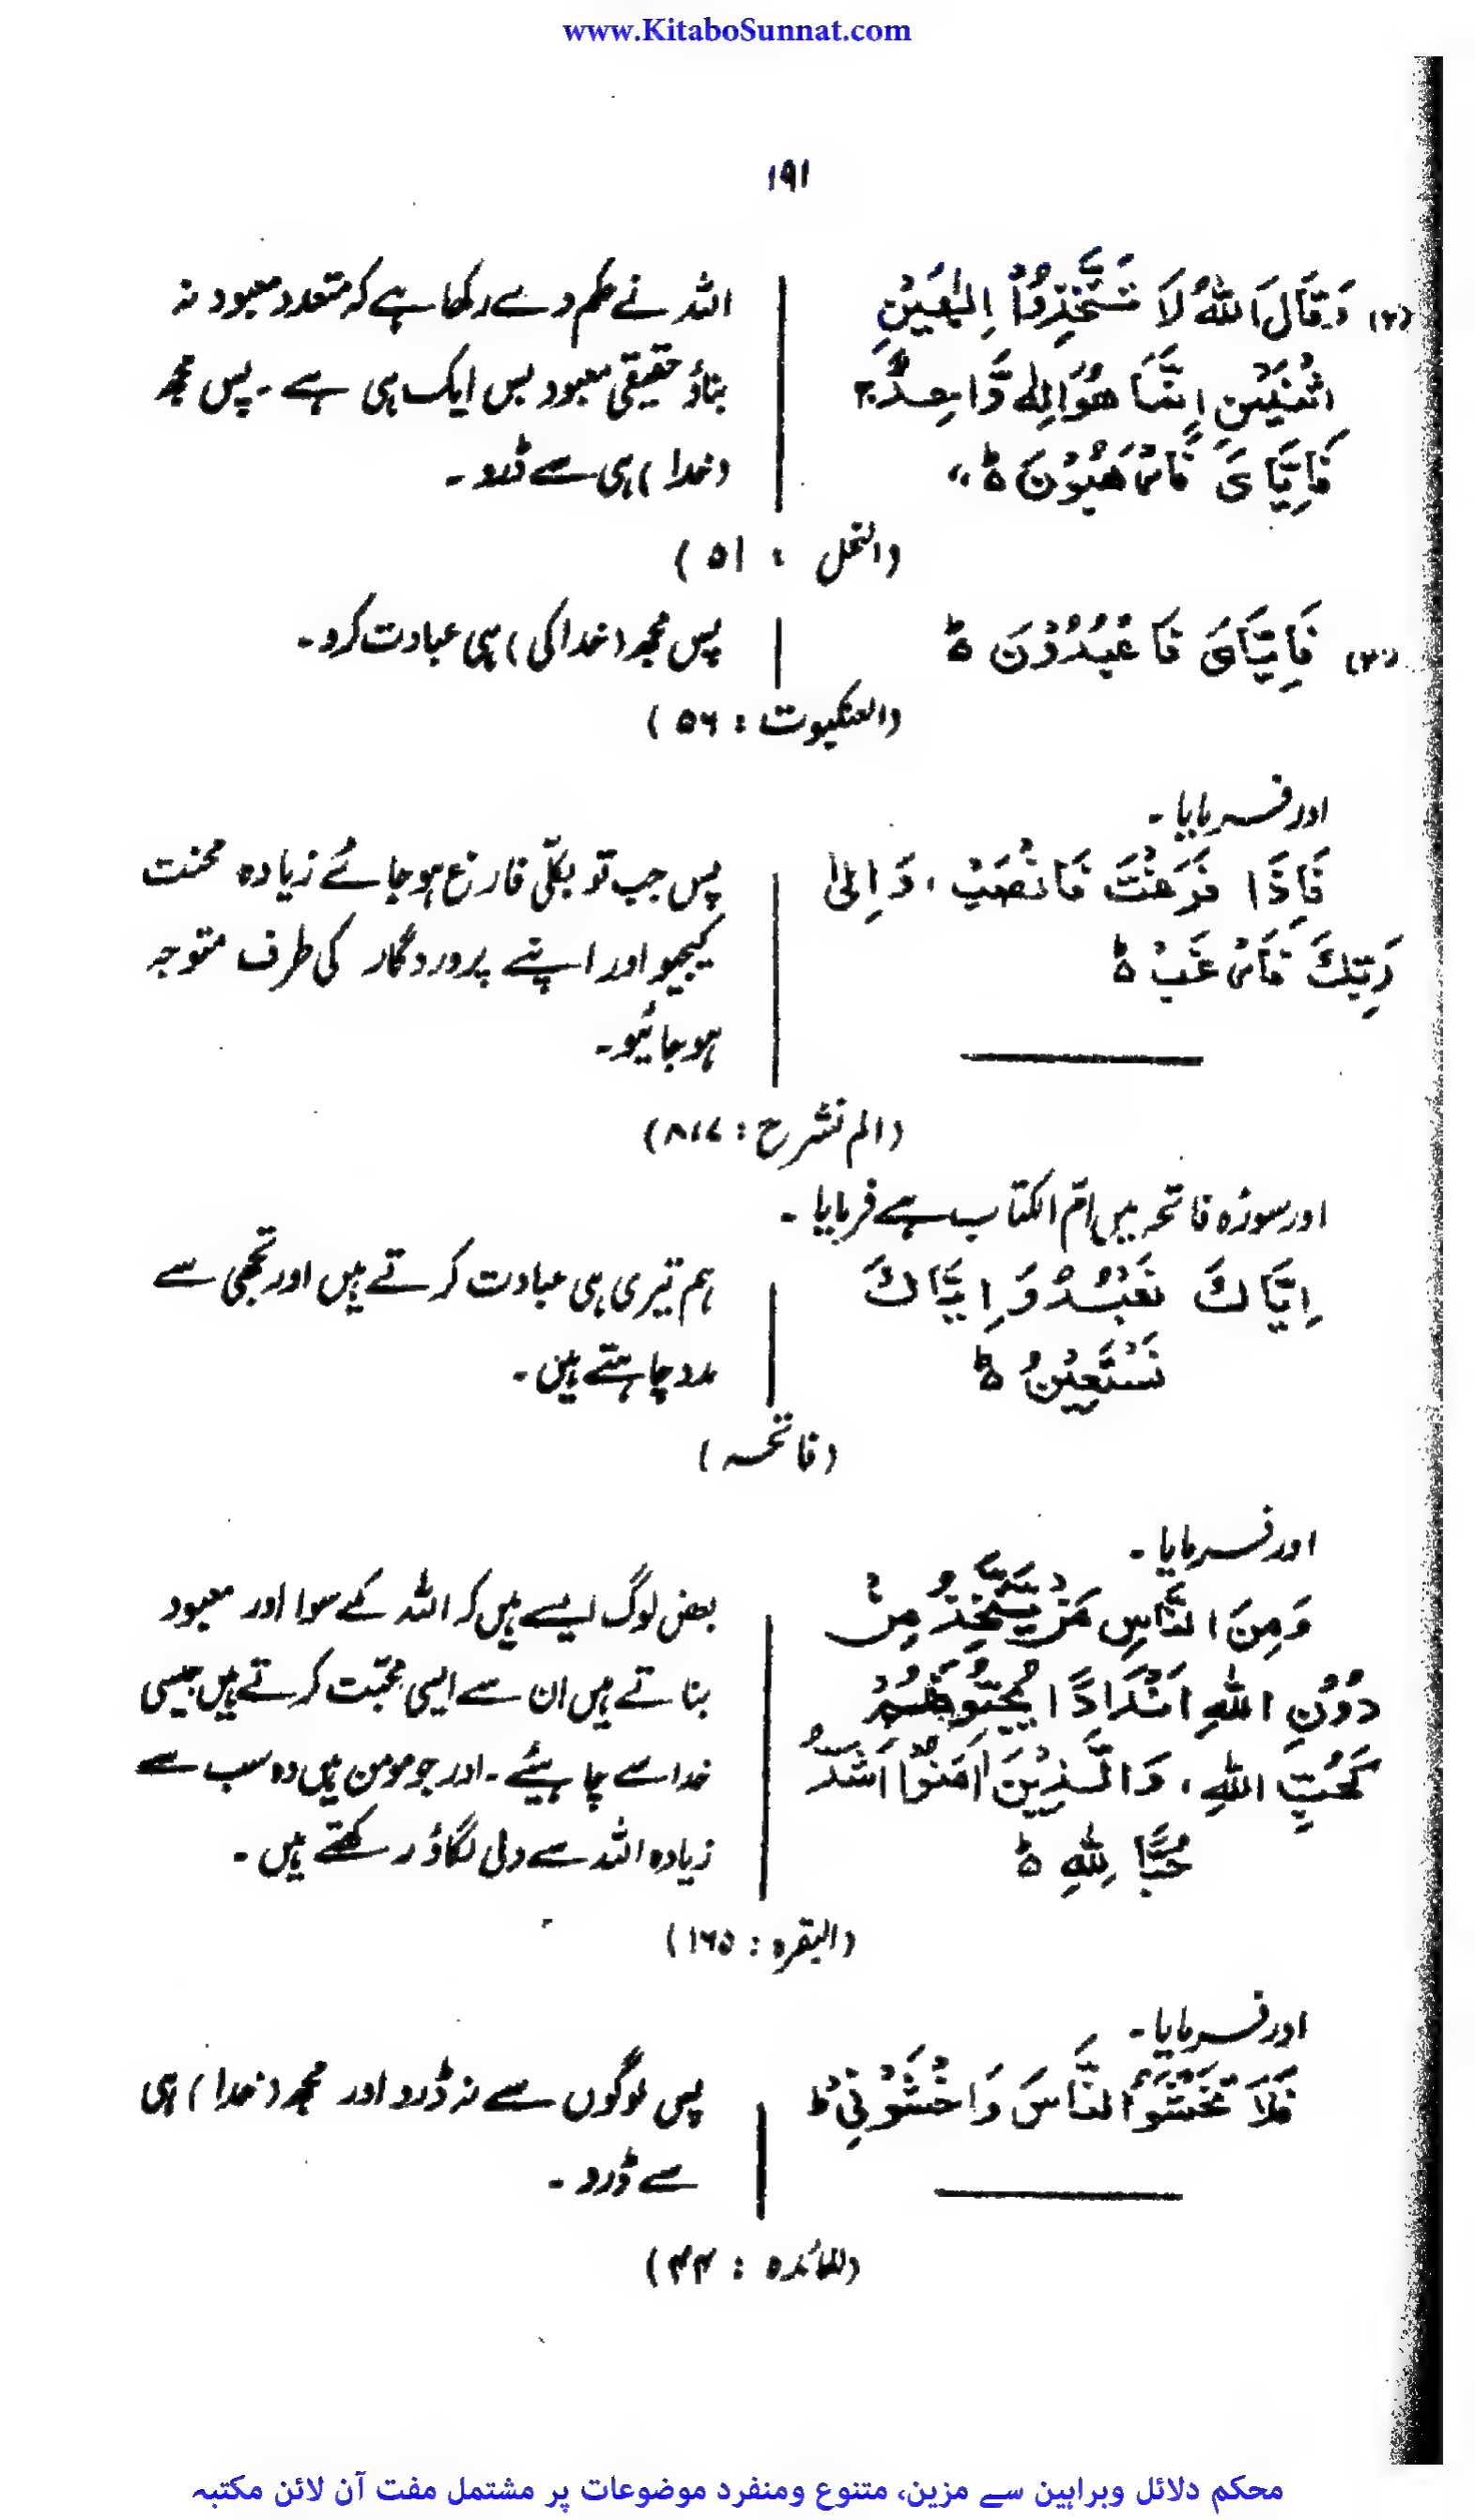 www.KitaboSunnat.com
۱۹۱
(۲) وَقَالَ اللّٰهُ لَا تَتَّخِذُوْٓا اِلٰهَيْنِ
اثْنَيْنِ اِنَّمَا هُوَ اِلٰهٌ وَّاحِدٌ ج
فَاِيَّايَ فَارْهَبُوْنَ ه ،،
اللہ نے حکم دے رکھا ہے کہ متعدد معبود نہ
بناؤ حقیقی معبود بس ایک ہی ہے ۔ پس مجھ
(خدا) ہی سے ڈرو ۔
(النحل : ۵۱)
(۳) فَاِيَّايَ فَاعْبُدُوْنَ ه
پس مجھ (خدا کی) ہی عبادت کرو ۔
(العنکبوت : ۵۶)
اور فرمایا ۔
فَاِذَا فَرَغْتَ فَانْصَبْ ، وَاِلٰى
رَبِّكَ فَارْغَبْ ه
پس جب تو بکلّی فارغ ہو جائے زیادہ محنت
کیجیو اور اپنے پروردگار کی طرف متوجہ
ہو جائیو ۔
(الم نشرح : ۸،۷)
اور سورۂ فاتحہ میں امّ الکتاب ہے فرمایا ۔
اِيَّاكَ نَعْبُدُ وَاِيَّاكَ
نَسْتَعِيْنُ ه
ہم تیری ہی عبادت کرتے ہیں اور تجھی سے
مدد چاہتے ہیں ۔
(فاتحہ)
اور فرمایا ۔
وَمِنَ النَّاسِ مَنْ يَّتَّخِذُ مِنْ
دُوْنِ اللّٰهِ اَنْدَادًا يُّحِبُّوْنَهُمْ
كَحُبِّ اللّٰهِ ، وَالَّذِيْنَ اٰمَنُوْٓا اَشَدُّ
حُبًّا لِلّٰهِ ه
بعض لوگ ایسے ہیں کہ اللہ کے سوا اور معبود
بناتے ہیں ان سے ایسی محبّت کرتے ہیں جیسی
خدا سے چاہیئے ۔ اور جو مومن ہیں وہ سب سے
زیادہ اللہ سے دلی لگاؤ رکھتے ہیں ۔
(البقرہ : ۱۶۵)
اور فرمایا ۔
فَلَا تَخْشَوُا النَّاسَ وَاخْشَوْنِيْ ط
پس لوگوں سے نہ ڈرو اور مجھ (خدا) ہی
سے ڈرو ۔
(المائدہ : ۴۴)
محکم دلائل وبراہین سے مزین، متنوع ومنفرد موضوعات پر مشتمل مفت آن لائن مکتبہ